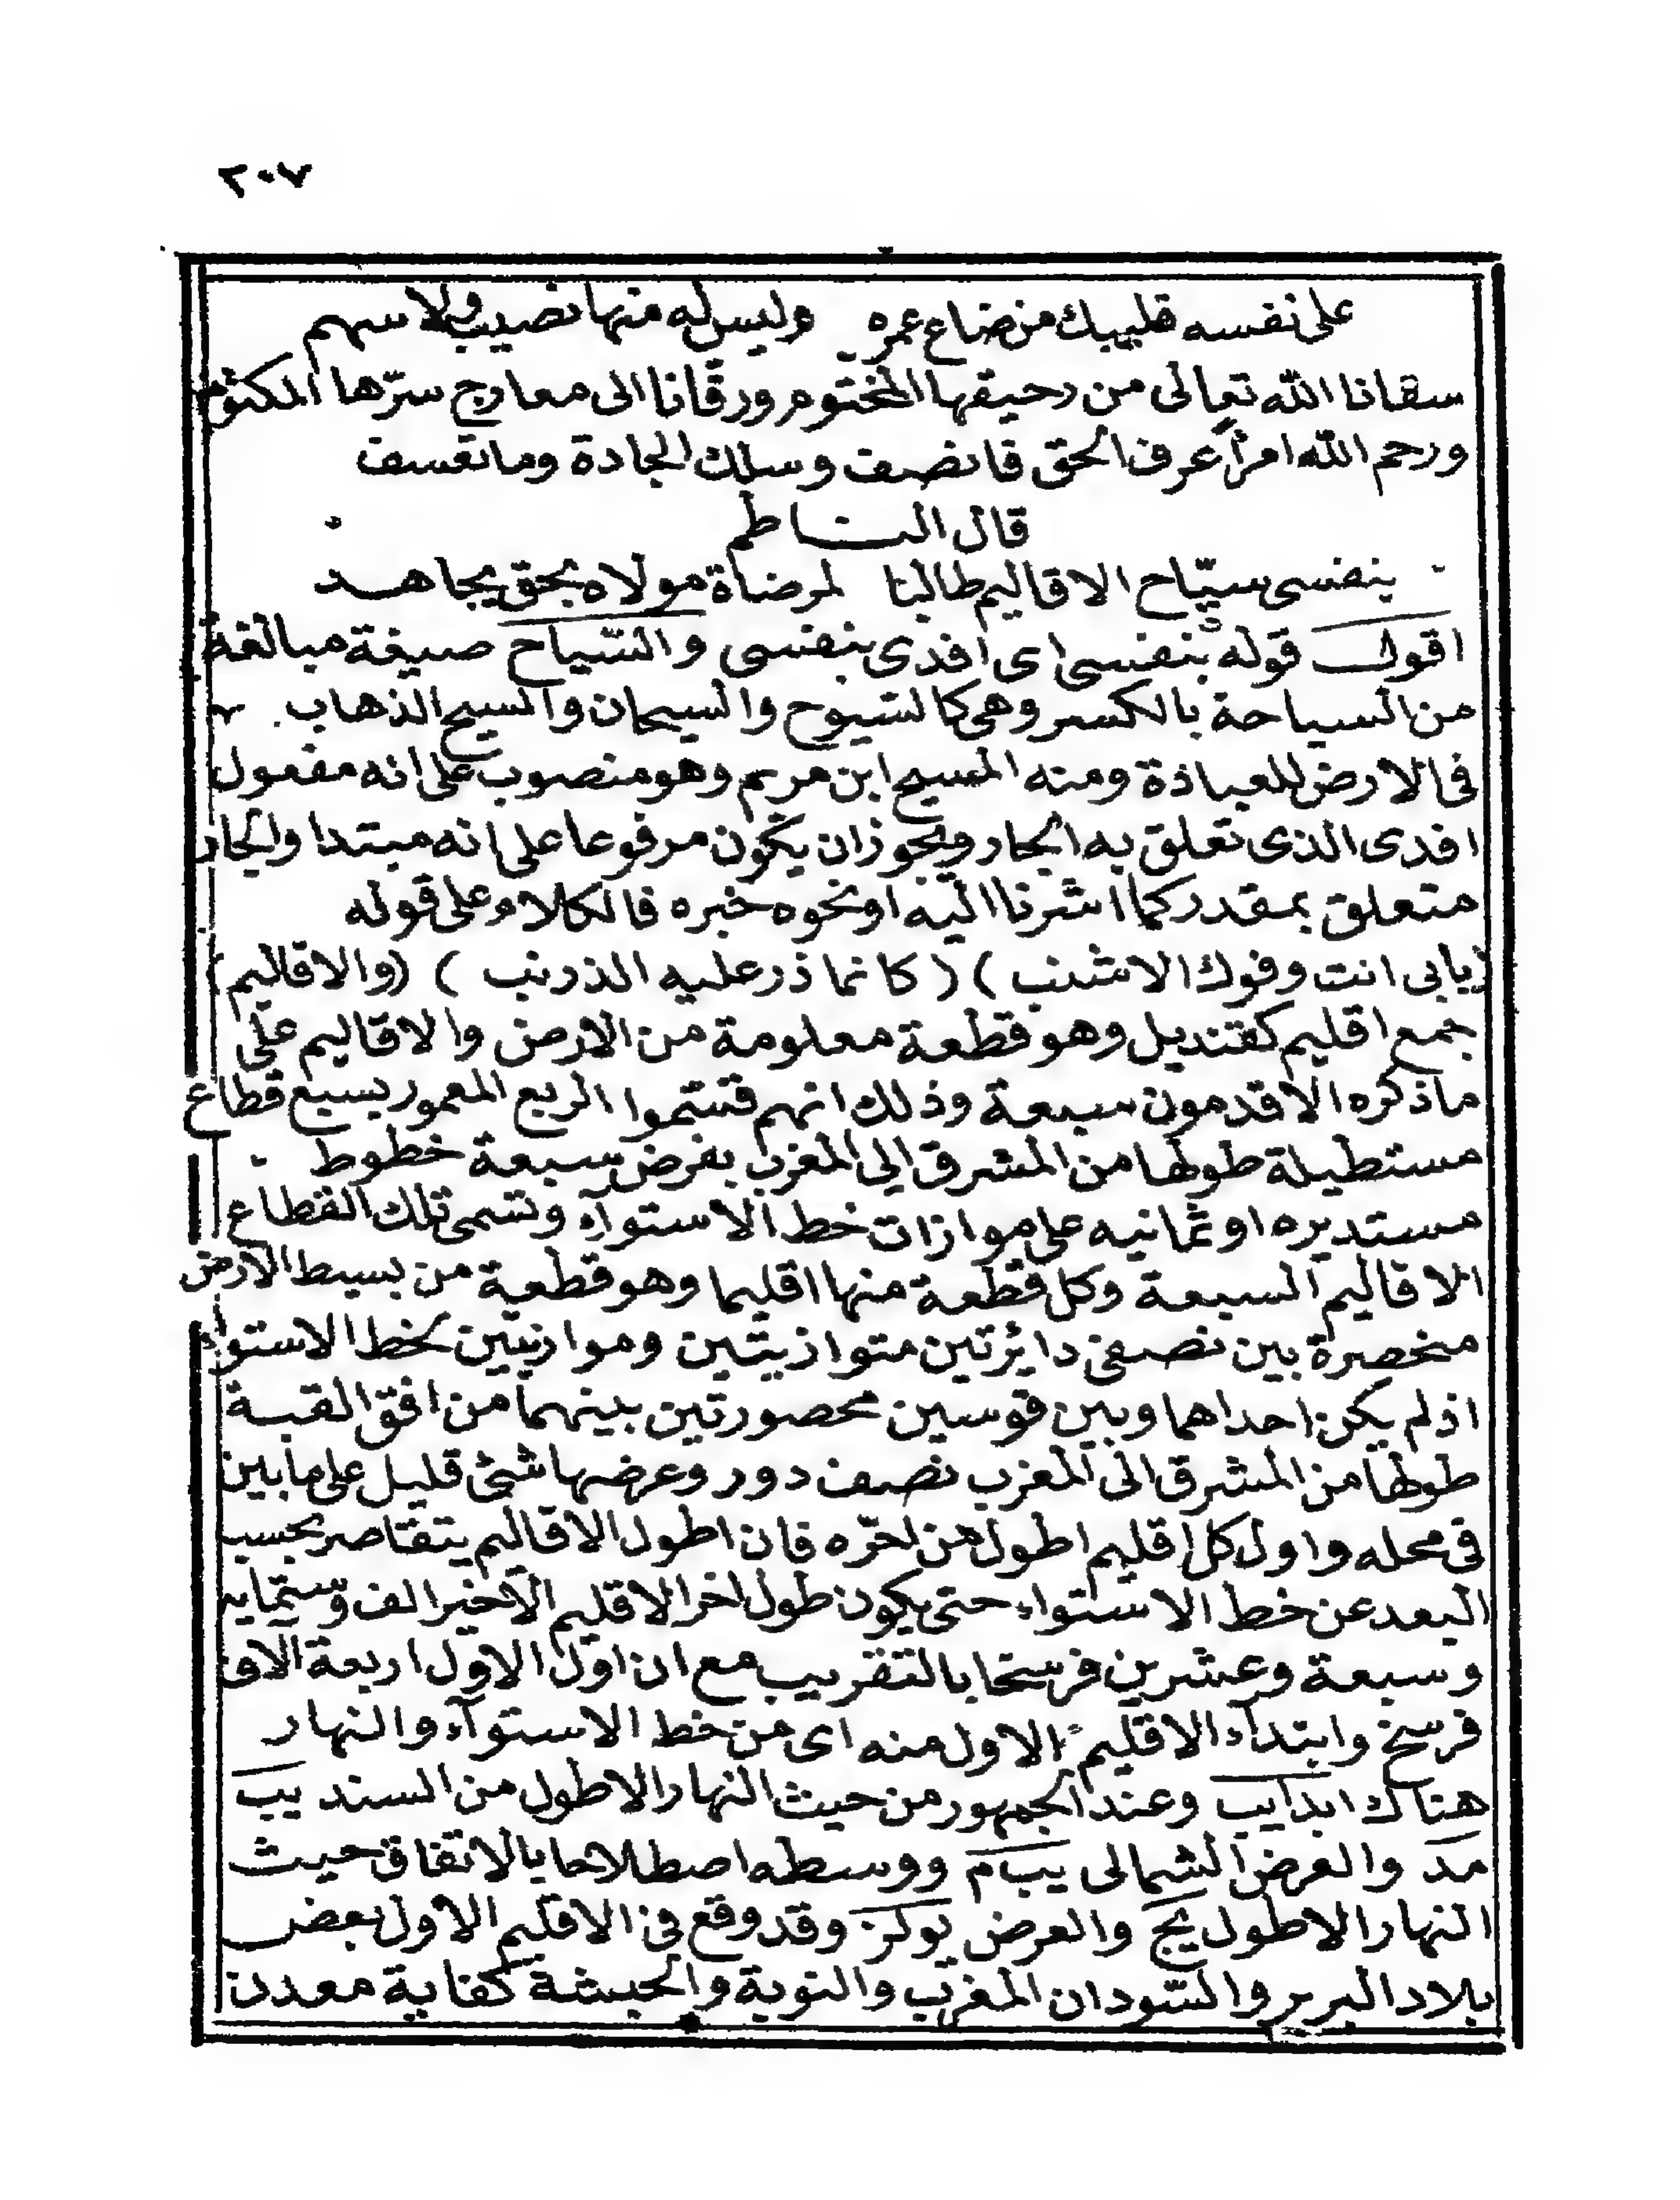 ٢٠٧
على نفسه فليبك من ضاع عمره وليس له منها نصيب ولا سهم
سقانا الله تعالى من رحيقها المختوم ورقّانا الى معارج سرّها المكتوم
ورحم الله امرأ عرف الحق فانصف وسلك الجادة وما تعسف
قال الناظم
بنفسى سيّاح الاقاليم طالبا لمرضاة مولاه بحق يجاهد
اقول قوله بنفسى اى افدى بنفسى والسّياح صيغة مبالغة
من السياحة بالكسر وهى كالسيوح والسيحان والسيح الذهاب
فى الارض للعبادة ومنه المسيح ابن مريم وهو منصوب على انه مفعول
افدى الذى تعلق به الجار ويجوز ان يكون مرفوعا على انه مبتدا والجار
متعلق بمقدر كما اشرنا اليه او نحوه خبره فالكلام على قوله
(يابى انت وفوك الاشنب) (كانما ذر عليه الذرنب) (والاقاليم)
جمع اقليم كقنديل وهو قطعة معلومة من الارض والاقاليم على
ما ذكره الاقدمون سبعة وذلك انهم قسّموا الربع المعمور بسبع قطاع
مستطيلة طولها من المشرق الى المغرب بفرض سبعة خطوط
مستديره او ثمانيه على موازات خط الاستوآء وتسمى تلك القطاع
الاقاليم السبعة وكل قطعة منها اقليما وهو قطعة من بسيط الارض
منحصرة بين نصفى دائرتين متوازيتين وموازيتين لخط الاستواء
اذ لم يكن احداهما وبين قوسين محصورتين بينهما من افق القبة
طولها من المشرق الى المغرب نصف دور وعرضها شئ قليل على ما بين
فى محله واول كل اقليم اطول من اخره فان اطول الاقاليم يتقاصر بحسب
البعد عن خط الاستواء حتى يكون طول اخر الاقليم الاخير الف وستمايه
وسبعة وعشرين فرسخا بالتقريب مع ان اول الاول اربعة الاف
فرسخ وابتدآء الاقليم الاول منه اى من خط الاستوآء والنهار
هناك ابدا يب وعند الجمهور من حيث النهار الاطول من السند يب
مد والعرض الشمالى يب م ووسطه اصطلاحا بالاتفاق حيث
النهار الاطول يج والعرض يو كز وقد وقع فى الاقليم الاول بعض
بلاد البربر والسّودان المغرب والنوبة والحبشة كفاية معدن